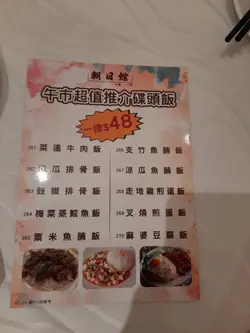 朝日館
午市超值推介碟頭飯
一律$48
261 菜遠牛肉飯
262 涼瓜排骨飯
263 豉椒排骨飯
264 梅菜蒸鯇魚飯
265 粟米魚腩飯
266 支竹魚腩飯
267 涼瓜魚腩飯
268 走地雞煎蛋飯
269 叉燒煎蛋飯
270 麻婆豆腐飯